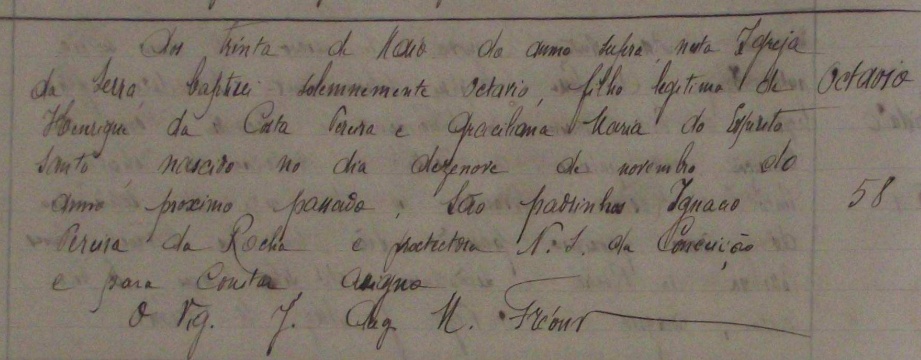 Aos trinta de Maio do anno supra, nesta Igreja
da Serra baptizei solemnemente Octavio, filho legitimo de
Henrique da Costa Pereira e Graciliana Maria do Espirito
Santo, nascido no dia dezenove de novembro do
anno proximo passado; São padrinhos Ignacio
Pereira da Rocha e protectora N. S. da Conceição
e para constar assigno
O Vig. J. M. Fréour
Octavio
58